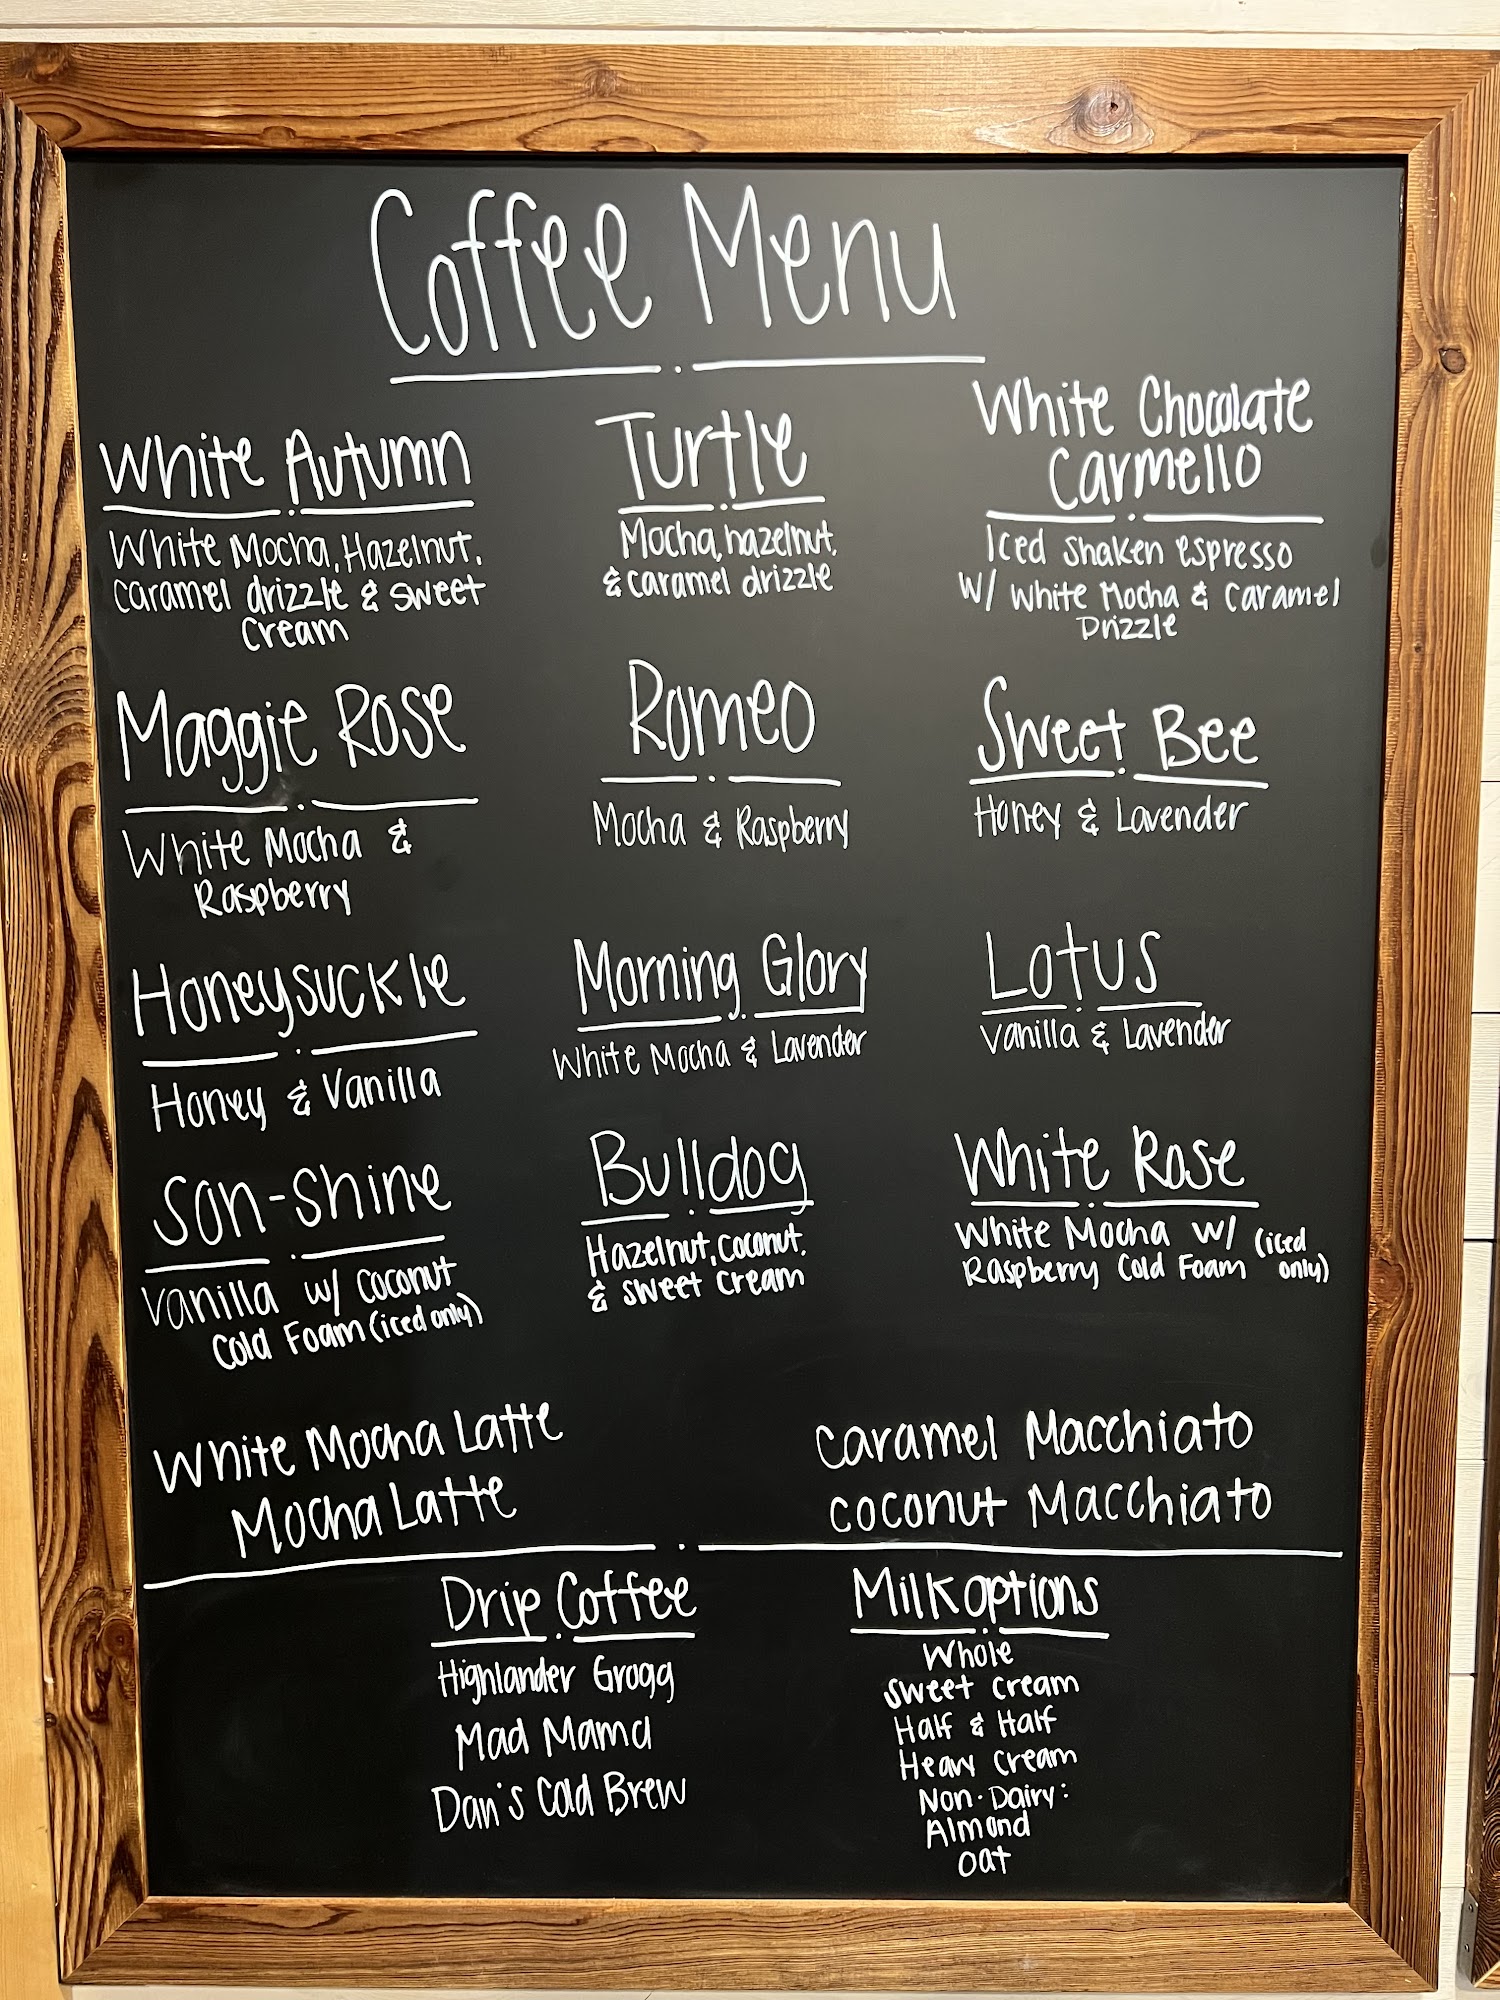 Coffee Menu
White Autumn
White Mocha, Hazelnut,
Caramel drizzle & sweet
Cream
Turtle
Mocha, hazelnut,
& caramel drizzle
White Chocolate
Carmello
Iced Shaken espresso
w/ White Mocha & Caramel
Drizzle
Maggie Rose
White Mocha &
Raspberry
Romeo
Mocha & Raspberry
Sweet Bee
Honey & Lavender
Honeysuckle
Honey & Vanilla
Morning Glory
White Mocha & Lavender
Lotus
Vanilla & Lavender
Son-Shine
Vanilla w/ Coconut
Cold Foam (iced only)
Bulldog
Hazelnut, coconut,
& sweet cream
White Rose
White Mocha w/
Raspberry Cold Foam (iced only)
White Mocha Latte
Mocha Latte
Caramel Macchiato
Coconut Macchiato
Drip Coffee
Highlander Grogg
Mad Mama
Dan's Cold Brew
Milk options
Whole
Sweet Cream
Half & Half
Heavy Cream
Non-Dairy:
Almond
Oat